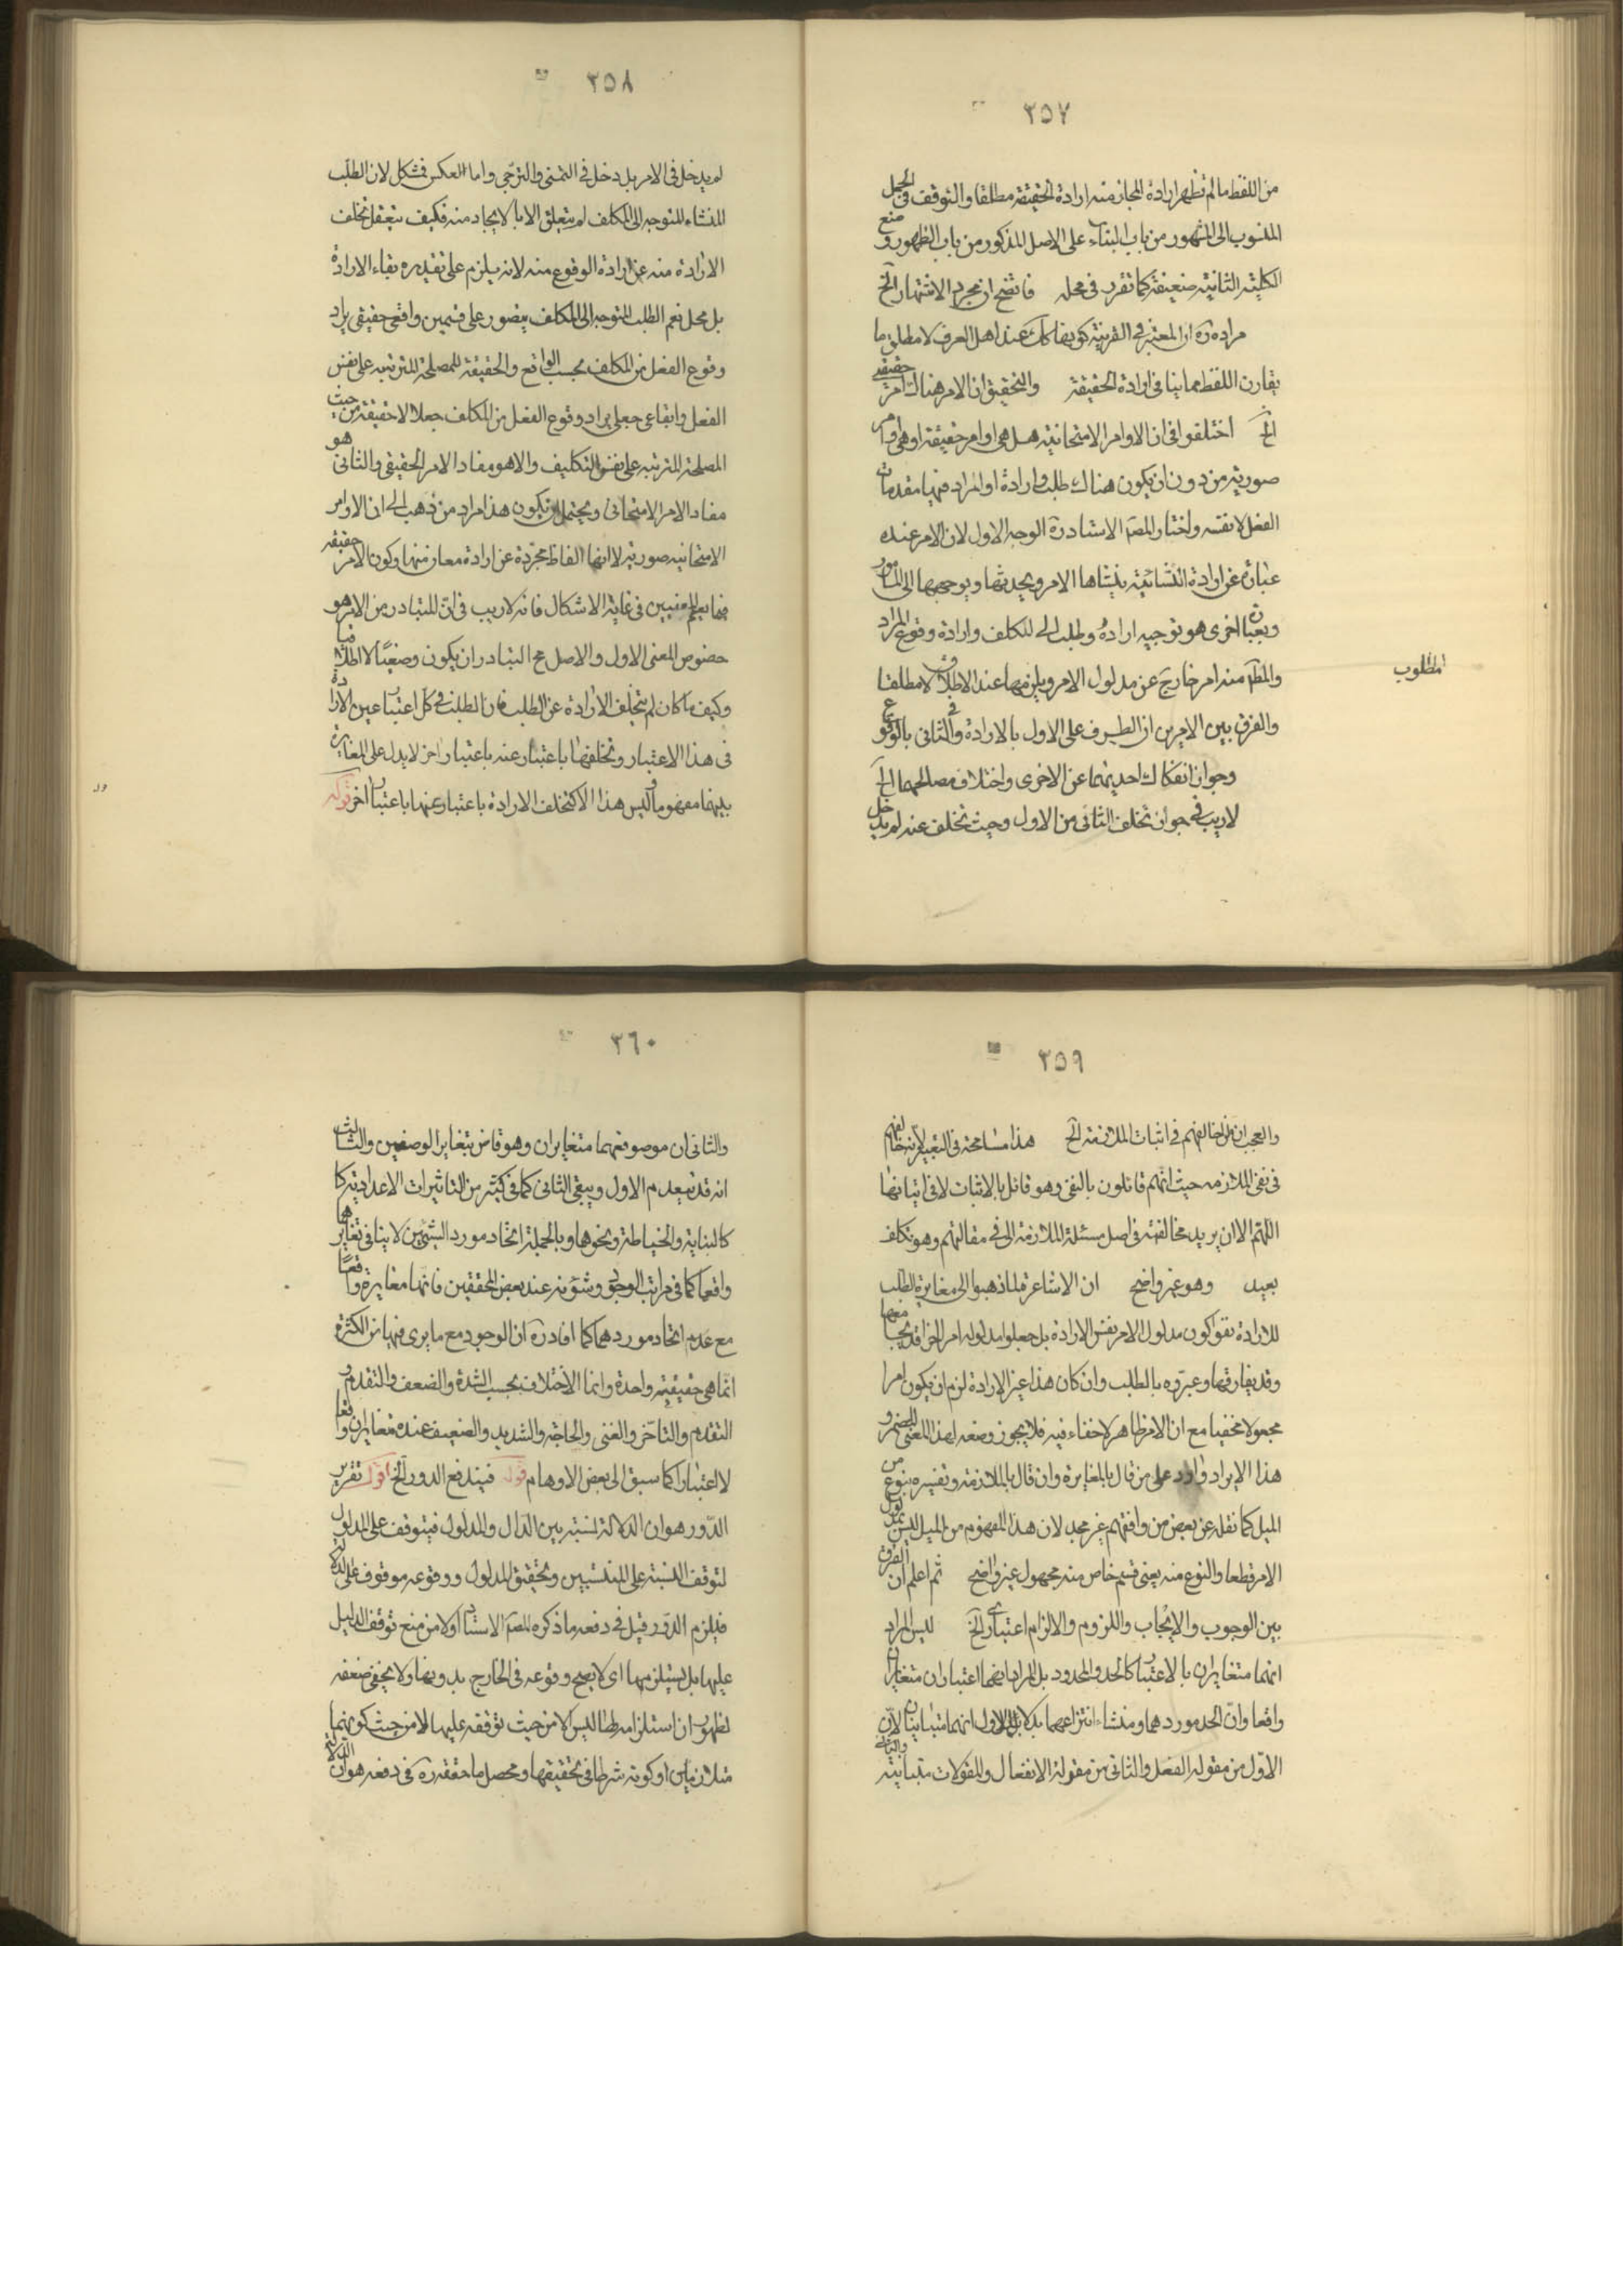 ٣٥٧
من اللفظ ما لم تظهر ارادة المجاز منه ارادة الحقيقة مطلقا والتوقف في الحمل
المنسوب الى المشهور من باب البناء على الاصل المذكور من باب الظهور و منع
الكلية الثانية ضعيفة كما تقرر في محله فاتضح ان مجرد الاشتهار الخ
مراده ره ان المعتبر في القرينة كونها كك عند اهل العرف لا مطلق ما
يقارن اللفظ مما ينافي ارادة الحقيقة والتحقيق ان الامر هناك امر حقيقي
الخ اختلفوا في ان الاوامر الامتحانية هل هي اوامر حقيقة او هي اوامر
صورية من دون ان يكون هناك طلب وارادة او المراد فيها مقدمات
الفعل لا نفسه واختار المصم الاستاد ره الوجه الاول لان الامر عنده
عبارة عن ارادة انشائية ينشاها الامر ويحدثها ويوجهها الى المامور
وبعبارة اخرى هو توجيه ارادة وطلب الى المكلف وارادة وقوع المراد
والمطم منه امر خارج عن مدلول الامر ويلزمها عند الاطلاق لا مطلقا
المطلوب
والفرق بين الامرين ان الطرف على الاول بالارادة وفي الثاني بالوقوع
وجواز انفكاك احديهما عن الاخرى واختلاف مصالحهما الخ
لا ريب في جواز تخلف الثاني من الاول وحيث تخلف عنه لم يدخل
٣٥٨
لم يدخل في الامر بل دخل في التمني والترجي واما العكس فمشكل لان الطلب
المنشاء المتوجه الى المكلف لم يتعلق الا بالايجاد منه فكيف يتعقل تخلف
الارادة منه عن ارادة الوقوع منه لانه يلزم على تقديره بقاء الارادة
بل محل نعم الطلب المتوجه الى المكلف يتصور على قسمين واقعي حقيقي يراد
وقوع الفعل من المكلف بحسب الواقع والحقيقة للمصلحة المترتبة على نفس
الفعل وايقاعي جعلي يراد وقوع الفعل من المكلف جعلا لا حقيقة من حيث
المصلحة المترتبة على نفس التكليف والا هو مفاد الامر الحقيقي والثاني هو
مفاد الامر الامتحاني ويحتمل ان يكون هذا مراد من ذهب الى ان الاوامر
الامتحانيه صورية لا انها الفاظ مجردة عن ارادة معان منها وكون الامر حقيقة
فيما يعم المعنيين في غاية الاشكال فانه لا ريب في ان المتبادر من الامر هو
خصوص المعنى الاول والاصل في التبادر ان يكون وضعيا لا اطلاقيا
وكيف ما كان لم يتخلف الارادة عن الطلب فان الطلب في كل اعتبار عين الارادة
في هذا الاعتبار وتخلفها باعتبار عنه باعتبار اخر لا يدل على المغايرة
بينهما مفهوما وليس هذا الا كتخلف الارادة باعتبار عنها باعتبار اخر قوله
٣٥٩
والعجب ان من خالفهم في اثبات الملازمة الخ هذا مسامحة في التعبير لانه خالفهم
في نفي الملازمه حيث انهم قائلون بالنفي وهو قائل بالاثبات لا في اثباتها
اللهم الا ان يريد مخالفته في اصل مسئلة الملازمة الى في مقالتهم وهو تكلف
بعيد وهو غير واضح ان الاشاعرة لما ذهبوا الى مغايرة الطلب
للارادة نفوا كون مدلول الامر نفس الارادة بل جعلوا مدلوله امرا اخر قد يجامعها
وقد يفارقها وعبروه بالطلب وان كان هذا غير الارادة لزم ان يكون امرا
مجهولا مخفيا مع ان الامر ظاهر لا خفاء فيه فلا يجوز وضعه لهذا المعنى المضمر و
هذا الايراد وارد على من قال بالمغايرة وان قال بالملازمة وتفسيره بنوع من
الميل كما نقله عن بعض من وافقهم غير مجد لان هذا المفهوم من الميل ليس بمدلول
الامر قطعا والنوع منه يعني قسم خاص منه مجهول غير واضح ثم اعلم ان الفرق
بين الوجوب والايجاب واللزوم والالزام اعتباري الخ ليس المراد
انهما متغايران بالاعتبار كالحد والمحدود بل المراد انهما اعتباران متغايران
واقعا وان اتحد موردهما ومنشاء انتزاعهما الاول انهما متباينان لان
الاول من مقوله الفعل والثاني من مقولة الانفعال والمقولات متباينة والثاني
٣٦٠
والثاني ان موصوفهما متغايران وهو قاض بتغاير الوصفين والثالث
انه قد ينعدم الاول ويبقى الثاني كما في كثير من التاثيرات الاعدادية كا
كالبناية والخياطة ونحوها وبالجملة اتحاد مورد الشيئين لا ينافي تغايرهما
واقعا كما في مراتب الوجود وشؤنه عند بعض المحققين فانها مغايرة واقعا
مع عدم اتحاد موردهما كما افاد ره ان الوجود مع ما يرى فيها من الكثرة
انما هي حقيقة واحدة وانما الاختلاف بحسب الشدة والضعف والتقدم و
التقدم والتاخر والغنى والحاجة والشديد والضعيف عنده متغايران واقعا
لا اعتبارا كما سبق الى بعض الاوهام قوله فيندفع الدور الخ اقول تقرير
الدور هو ان الدلالة نسبة بين الدال والمدلول فيتوقف على المدلول
لتوقف النسبة على المنتسبين وتحقيق المدلول ووقوعه موقوف على الدلالة
فيلزم الدور وقيل في دفعه ما ذكره المصم الاستاد اولا من منع توقف الدليل
عليها بل يستلزمها اي لا يصح وقوعه في الخارج بدونها ولا يخفى ضعفه
لظهور ان استلزامه لها ليس الا من حيث توقفه عليها لا من حيث كونهما
متلازمين او كونه شرطا في تحقيقها ومحصل ما حققه ره في دفعه هو ان الدلالة